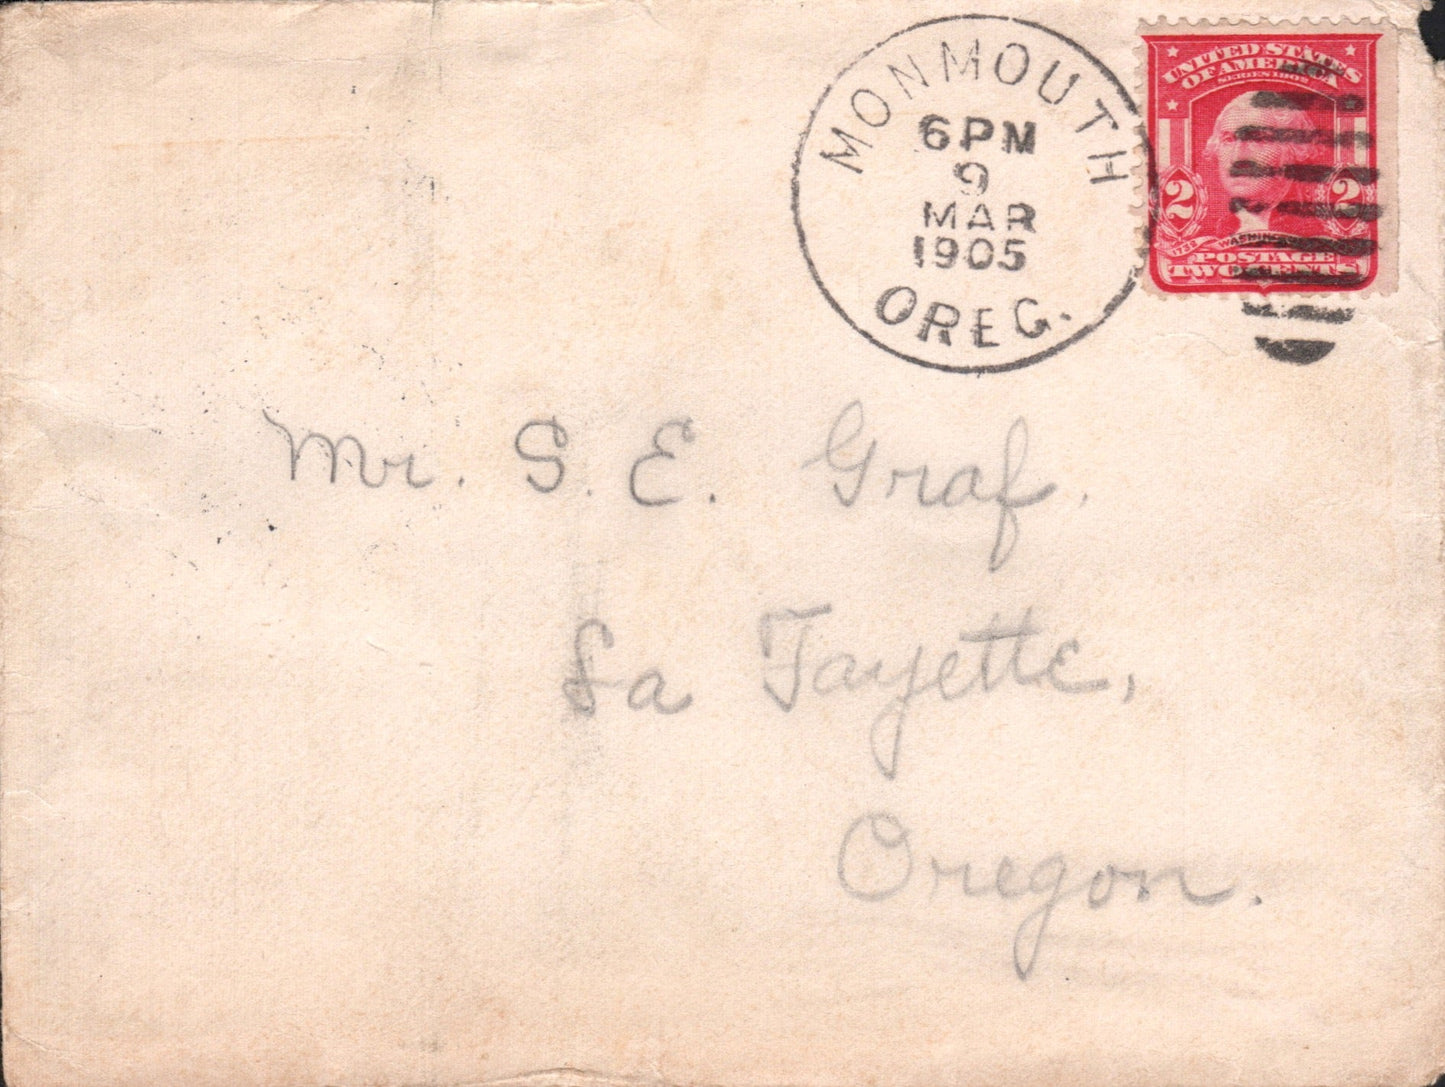 MONMOUTH
6PM
9
MAR
1905
OREG.
UNITED STATES
OF AMERICA
SERIES 1902
2 2
1732
POSTAGE
TWO CENTS
Mr. S. E. Graf.
La Fayette,
Oregon.